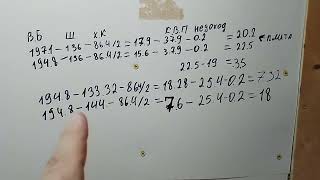 ВБ Ш хК КВП незоход
197.1-136-86.4/2=17.9-37.9-0.2=20.2
194.8-136-86.4/2=15.6-37.9-0.2=22.5 плита
22.5-19=3.5
194.8-133.32-86.4/2=18.28-25.4-0.2=7.32
194.8-144-86.4/2=7.6-25.4-0.2=18